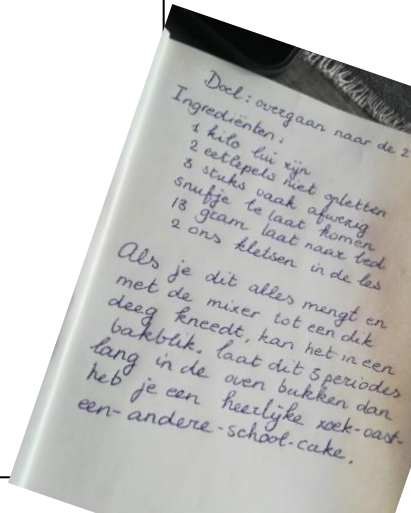 Doel: overgaan naar de 2
Ingrediënten:
1 kilo lui zijn
2 eetlepels niet opletten
3 stuks vaak afwezig
snufje te laat komen
13 gram laat naar bed
2 ons kletsen in de les
Als je dit alles mengt en
met de mixer tot een dik
deeg kneedt, kan het in een
bakblik. laat dit 3 periodes
lang in de oven bakken dan
heb je een heerlijke zoek-oast-
een-andere-school-cake.